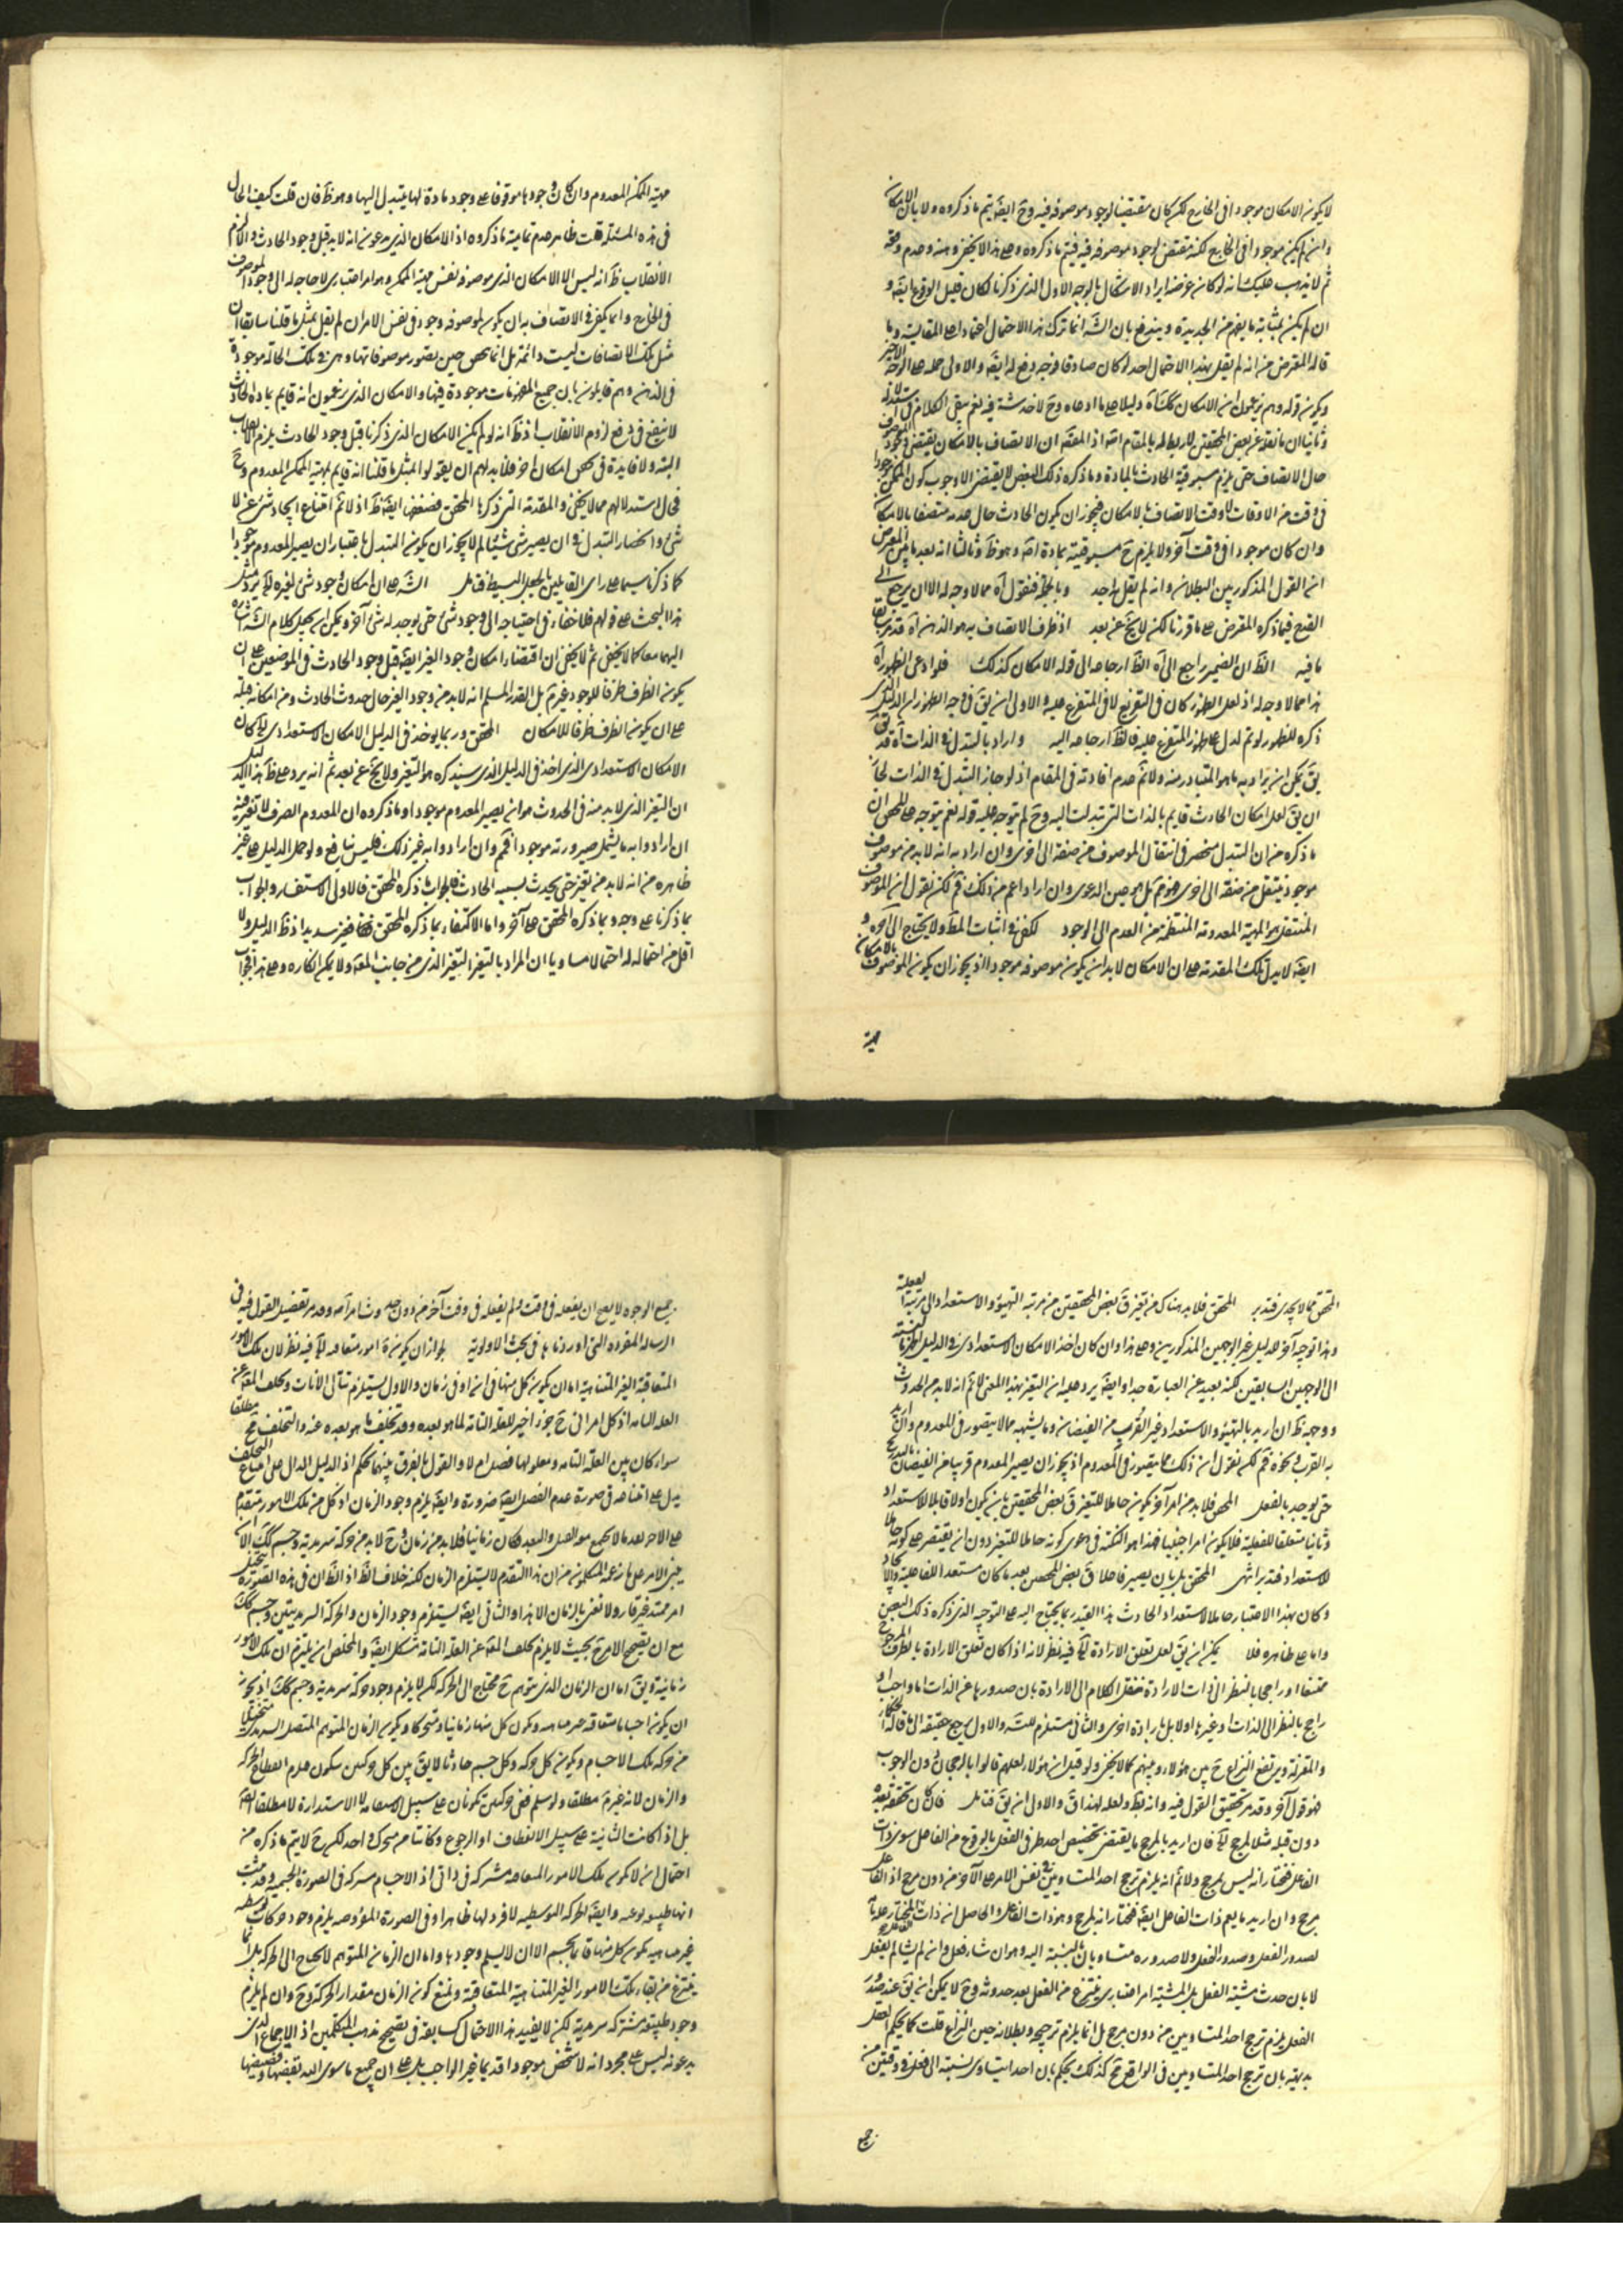 لا يكون الامكان موجودا فى الخارج لكن كان مقتضيا لوجود موصوفه فيه وح ايضا يتم ما ذكروه ولا بان الامكان
وان لم يكن موجودا فى الخارج لكنه مقتض لوجود موصوفه فيه فيتم ما ذكروه وعلى هذا لا يخفى وهنه وعدم
ثم لا يذهب عليك انه لو كان غرضه ايراد الاشكال بالوجه الاول الذى ذكرنا لكان قبل الوقوع ايضا و
ان لم يكن بمثابة ما يفهم من الجديدة ويندفع بان الش انما ترك هذا الاحتمال اعتمادا على المقايسة وما
قاله المعترض من انه لم يقل بهذا الاحتمال احد لو كان صادقا فوجه دفع له ايضا والاولى حمله على الوجه الاخير
ويكون قوله وهم يزعمون ان الامكان دليلا على ما ادعاه وح لا خدشة فيه نعم يبقى الكلام فى
وثانيا ان ما نقله عن بعض المحققين لا ربط له بالمقام اصلا اذ المقص ان الاتصاف بالامكان يقتضى وجود الموصوف
حال الاتصاف حتى يلزم مسبوقية الحادث بالمادة وما ذكره ذلك البعض لا يقتضى الا وجوب كون الممكن موجودا
فى وقت من الاوقات لا وقت الاتصاف بالامكان فيجوز ان يكون الحادث حال عدمه متصفا بالامكان
وان كان موجودا فى وقت آخر ولا يلزم ح مسبوقيته بمادة اصلا وهو ظ وثالثا انه بعد ما بين المعترض
ان القول المذكور بين البطلان وانه لم يقل به احد وبالجملة فنقول آه مما لا وجه له الا ان يرجع الى
القبح فيما ذكره المعترض على ما قررنا لكنه لا يخ عن بعد اذ ظرف الاتصاف به هو الذهن آه قد مر سابقا
ما فيه الظ ان الضمير راجع الى آه الظ ارجاعه الى قوله الامكان كذلك فلو ادعى الظهور آه
هذا مما لا وجه له اذ لعل الظهور كان فى التفريع لا فى المتفرع عليه والاولى ان يق فى وجه الظهور ان الدليل الذى
ذكره للظهور لو تم لدل على ظهور المتفرع عليه فالظ ارجاعه اليه واراد بالتبدل فى الذات آه قد
يق يمكن ان يراد به ما هو المتبادر منه ولا نم عدم افادته فى المقام اذ لو جاز التبدل فى الذات لجاز
ان يق لعل امكان الحادث قايم بالذات التى تبدلت اليه وح لم يتوجه عليه قوله نعم يتوجه على المحقق ان
ما ذكره من ان التبدل منحصر فى انتقال الموصوف من صفة الى اخرى وان اراد به انه لا بد من موصوف
موجود ينتقل من صفة الى اخرى فهو مم بل هو عين الدعوى وان اراد اعم من ذلك فم لكن نقول ان الموصوف
المنتقل هو المهية المعدومة المنتقلة من العدم الى الوجود لكفى فى اثبات المط ولا يحتاج الى آخره و
ايضا لا يدل تلك المقدمة على ان الامكان لا بد ان يكون موصوفه موجودا اذ يجوز ان يكون الموصوف بالامكان
مهية
مهية الممكن المعدوم وان كان وجودها موقوفا على وجود مادة لها يتبدل اليها وهو ظ فان قلت كيف الحال
فى هذه المسئلة قلت ظاهر عدم تمامية ما ذكروه اذ الامكان الذى يدعون انه لا بد قبل وجود الحادث والا لزم
الانقلاب ظ انه ليس الا الامكان الذى موصوفه نفس مهية الممكن وهو امر اعتبارى لا حاجة له الى وجود الموصوف
فى الخارج وانما يكفى فى الاتصاف به ان يكون لموصوفه وجود فى نفس الامر ان لم يقل بمثل ما قلنا سابقا ان
مثل تلك الاتصافات ليست دائمة بل انما يحصل حين تصور موصوفاتها وهى فى تلك الحالة موجودة
فى الذهن وهم قايلون بان جميع المفهومات موجودة فيها والامكان الذى يزعمون انه قايم بمادة الحادث
لا ينفع فى دفع لزوم الانقلاب اذ ظ انه لو لم يكن الامكان الذى ذكرنا قبل وجود الحادث يلزم الانقلاب
البتة ولا فايدة فى تحقق امكان آخر فلا بد لهم ان يقولوا بمثل ما قلنا انه قايم بمهية الممكن المعدوم وح
فحال استدلالهم مما لا يخفى والمقدمة التى ذكرها المحقق فضعفها ايضا ظ اذ لا نم امتناع ايجاد شئ عن لا
شئ وانحصار التبدل فى ان يصير شئ شيئا لم لا يجوز ان يكون التبدل باعتبار ان يصير المعدوم موجودا
كما ذكرنا سيما على راى القايلين بالجعل البسيط فتامل الش على ان امكان وجود شئ لغيره آه يرد مثل
هذا البحث على قولهم فلا خفاء فى احتياجه الى وجود شئ حتى يوجد له شئ آخر ويمكن ان يجعل كلام الش اشارة
اليهما معا كما لا يخفى ثم لا يخفى ان اقتضاء امكان وجود الغير ايضا قبل وجود الحادث فى الموضعين على ان
يكون الظرف ظرفا للوجود غير مم بل القدر المسلم انه لا بد من وجود الغير حال حدوث الحادث ومن امكانه قبله
على ان يكون الظرف ظرفا للامكان المحقق وربما يؤخذ فى الدليل الامكان الاستعدادى آه كان
الامكان الاستعدادى الذى اخذ فى الدليل الذى سيذكره هو التغير ولا يخ عن بعد ثم انه يرد على ظ هذا الدليل
ان التغير الذى لا بد منه فى الحدوث هو ان يصير المعدوم موجودا وما ذكروه ان المعدوم الصرف لا تغير فيه
ان ارادوا به ما يشمل صيرورته موجودا فمم وان ارادوا به غير ذلك فليس بنافع ولو حمل الدليل على غير
ظاهره من انه لا بد من تغير حتى يحدث بسببه الحادث فالجواب ما ذكره المحقق فالاولى الاستفسار والجواب
بما ذكرنا على وجه وبما ذكره المحقق على آخر واما الاكتفاء بما ذكره المحقق فغير سديد اذ ظ الدليل ولا
اقل من احتماله له احتمالا مساويا ان المراد بالتغير التغير الذى من جانب المعلول ولا يمكن انكاره وعلى هذا فجواب
المحقق مما لا يجدى فتدبر المحقق فلا بد هناك من تغير ق بعض المحققين من مرتبة التهيؤ والاستعداد الى مرتبة الفعلية
وهذا توجيه آخر للدليل غير الوجهين المذكورين وعلى هذا وان كان اخذ الامكان الاستعدادى فى الدليل اظهر بالنسبة
الى الوجهين السابقين لكنه بعيد عن العبارة جدا وايضا يرد عليه ان التغير بهذا المعنى لا نم انه لا بد من الحدوث
ووجهه ظ ان اريد بالتهيؤ والاستعداد غير القرب من الفيضان وما يشبهه مما لا يتصور فى المعدوم وان اريد
به القرب ونحوه فم لكن نقول ان ذلك مما يتصور فى المعدوم اذ يجوز ان يصير المعدوم قريبا من الفيضان بالتدريج
حتى يوجد بالفعل المحقق فلا بد من امر آخر يكون حاملا للتغير ق بعض المحققين بان يكون اولا قابلا للاستعداد
وثانيا متعلقا للفعلية فلا يكون امرا اجنبيا فهذا هو النكتة فى دعوى كونه حاملا للتغير دون ان يقتصر على كونه حاملا
للاستعداد فتدبر انتهى المحقق بل بان يصير فاعلا ق بعض المحققين بعد ما كان مستعدا للفاعلية
وكان بهذا الاعتبار حاملا لاستعداد الحادث هذا القيد ربما يحتاج اليه على التوجيه الذى ذكره ذلك البعض
واما على ظاهره فلا يمكن ان يق لعل تعلق الارادة آه فيه نظر لانه اذا كان تعلق الارادة بالطرف المرجوح
ممتنعا او راجحا بالنظر الى ذات الارادة ننقل الكلام الى الارادة بان صدورها عن الذات اما واجب او
راجح بالنظر الى الذات او غيرها او لا بل بارادة اخرى والثانى مستلزم للتس والاول يرجع حقيقة الى ما قاله الحكماء
والمعتزلة ويرتفع النزاع ح بين هؤلاء وبينهم كما لا يخفى ولو قيل ان هؤلاء لعلهم قالوا بالرجحان دون الوجوب
فهو قول آخر وقد مر تحقيق القول فيه وانه بط ولعله لهذا ق والاول ان يق فتامل فان كان تحققه بعده
دون قبله مثلا لمرجح آه فان اريد بالمرجح ما يقتضى تخصيص احد طرفى الفعل بالوقوع من الفاعل سوى ذات
الفاعل فنختار انه ليس لمرجح ولا نم انه يلزم ترجح احد المتساويين فى نفس الامر على الآخر من دون مرجح اذ الفاعل
مرجح وان اريد ما يعم ذات الفاعل ايضا فنختار انه لمرجح وهو ذات الفاعل والحاصل ان ذات المختار علة
لصدور الفعل وصدور الفعل ولا صدوره متساويان بالنسبة اليه وهو ان شاء فعل وان لم يشأ لم يفعل
لا بان حدث مشية الفعل بل المشية امر اعتبارى ينتزع من الفعل بعد حدوثه وح لا يمكن ان يق عند صدور
الفعل يلزم ترجح احد المتساويين من دون مرجح بل انما يلزم ترجيحه وبطلانه عين النزاع قلت كما يحكم العقل
بديهة بان ترجح احد المتساويين فى الواقع مح كذلك يحكم بان احدا يتساوى نسبته الى فعل فى وقتين من
جميع
جميع الوجوه لا يصح ان يفعله فى وقت ولم يفعله فى وقت آخر من دون حدوث امر آخر وقد مر تفصيل القول فيه فى
الرسالة المفردة التى اوردناها فى بحث الاولوية لجواز ان يكون ثمة امور متعاقبة آه فيه نظر لان تلك الامور
المتعاقبة الغير المتناهية اما ان يكون كل منها فى آن او فى زمان والاول يستلزم تتالى الآنات وتخلف المعلول عن
العلة التامة اذ كل امر آنى ح جزء اخير للعلة التامة لما هو بعده وقد تخلف ما هو بعده عنه والتخلف مح مطلقا
سواء كان بين العلة التامة ومعلولها فصل ام لا والقول بالفرق بينهما تحكم اذ الدليل الدال على امتناع التخلف
يدل على امتناعه فى صورة عدم الفصل ايضا ضرورة وايضا يلزم وجود الزمان اذ كل من تلك الامور متقدم
على الآخر بعدما لا يجتمع معه القبل والبعد فكان زمانيا فلا بد من زمان وح لا بد من حركة سرمدية وجسم كك
يبنى الامر على ما زعمه المتكلمون من ان هذا التقدم لا يستلزم الزمان لكنه خلاف الظ اذ الظ ان فى هذه الصورة يتخيل
امر ممتد غير قار ولا نعنى بالزمان الا هذا والثانى ايضا يستلزم وجود الزمان والحركة السرمديتين وجسم كك
مع ان تصحيح الامر ح بحيث لا يلزم تخلف المعلول عن العلة التامة مشكل ايضا والمخلص ان يلتزم ان تلك الامور
زمانية ويق اما ان الزمان الذى يتوهم ح محتاج الى الحركة لكن لا يلزم وجود حركة سرمدية وجسم كك اذ يجوز
ان يكون اجساما متعاقبة غير متناهية ويكون كل منها زمانيا ومتحركا ويكون الزمان المتوهم المتصل السرمدى منتزعا
من حركة تلك الاجسام ويكون كل حركة وكل جسم حادثا لا يق بين كل حركتين سكون فيلزم انقطاع الحركة
والزمان لانه غير مم مطلقا ولو سلم ففى حركتين تكونان على سبيل الاستقامة لا الاستدارة لا مطلقا ايضا
بل اذا كانت الثانية على سبيل الانعطاف او الرجوع وكانتا من متحرك واحد لكن ح لا يتم ما ذكره من
احتمال ان لا يكون تلك الامور المتعاقبة مشتركة فى ذاتى اذ الاجسام مشتركة فى الصورة الجسمية وقد ثبت
انها طبيعة نوعية وايضا الحركة التوسطية لا فرد لها ظاهرا وفى الصورة المفروضة يلزم وجود حركات توسطية
غير متناهية يكون كل منها قائما بجسم الا ان لا يسلم وجودها واما ان الزمان المتوهم لا يحتاج الى الحركة بل انما
ينتزع من بقاء تلك الامور الغير المتناهية المتعاقبة ونمنع كون الزمان مقدار الحركة وح وان لم يلزم
وجود طبيعة مشتركة سرمدية لكن لا يفيد هذا الاحتمال كسابقه فى تصحيح مذهب المتكلمين اذ الاجماع الذى
يدعونه ليس على مجرد انه لا شخص موجودا قديما غير الواجب بل على ان جميع ما سوى الله بنقيضها